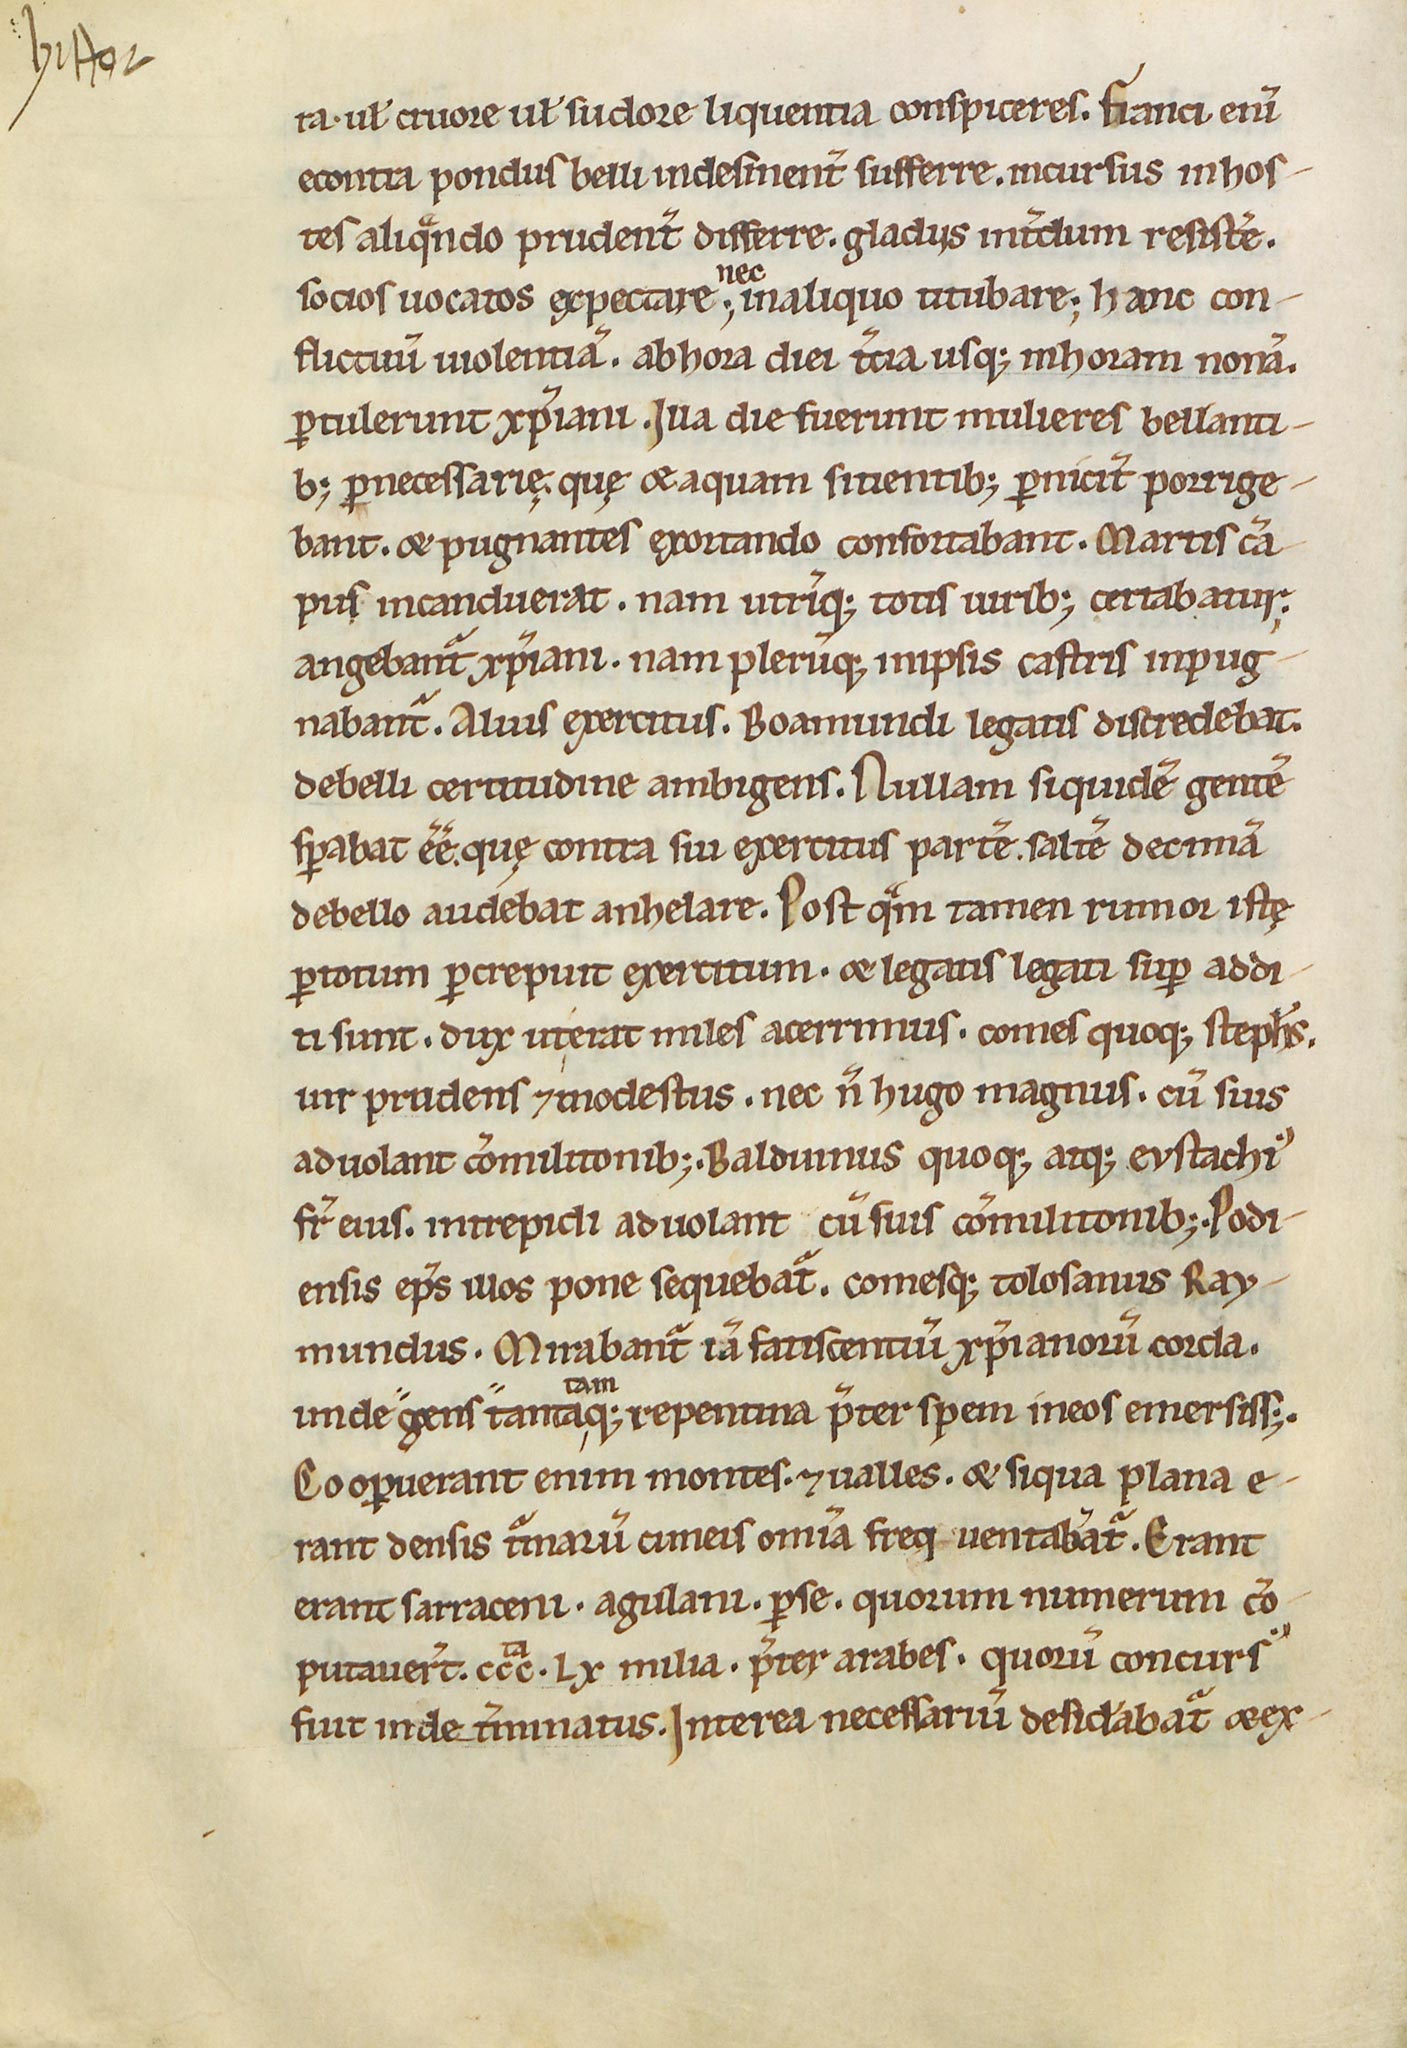 histor
ra. uł cruore uł sudore liquentia conspiceres. Franci eni᷑
econtra pondus belli indesinent᷑ sufferre. incursus inhos-
tes aliqͣndo prudent᷑ differre. gladijs int᷑dum resist᷑e.
socios uocatos expectare; nec inaliquo titubare; hanc con-
flictuū uiolentiā. abhora diei t᷑cia usq; inhoram nonā.
ꝑtulerunt xp̄iani. Illa die fuerunt mulieres bellanti-
b; ꝑnecessarię. quę & aquam sitientib; ꝑnicit᷑ porrige-
bant. & pugnantes exortando confortabant. Martis cā-
pus incanduerat. nam utrīq; totis uirib; certabatur;
angebant᷑ xp̄iani. nam plerūq; inipsis castris inpug-
nabant᷑. Aliuis exercitus. Boamundi legatis discredebat.
debelli certitudine ambigens. Nullam siquidē gentē
sꝑabat ēē. quę contra sui exercitus partē. saltē decimā
debello audebat anhelare. Post qͣm tamen rumor istę
ꝑtotum ꝑcrepuit exercitum. & legatis legati suꝑ addi-
ti sunt. dux uterat miles acerrimus. comes quoq; steph̄s.
uir prudens ⁊ modestus. nec n̄ hugo magnus. cū suis
aduolant cōmilitonib;. Balduinus quoq; atq; eustachi᷒
fr̄ eius. intrepidi aduolant cū suis cōmilitonib;. Podi-
ensis ep̄s illos pone sequebat᷑. comesq; tolosanus Ray-
mundus. Mirabant᷑ iā fatiscentiū xp̄ianorū corda.
unde gens tanta tamq; repentina p̄ter spem ineos emersiss;.
Cooꝑuerant enim montes. ⁊ ualles. & siqua plana e-
rant densis t᷑marū cuneis omīa freq uentabāt᷑. Erant
erant sarraceni. agulani. ꝑse. quorum numerum cō-
putauer̄t. ccc ta. lx milia. p̄ter arabes. quorū concurs᷒
fuit inde t᷑minatus. Interea necessariū desid᷑abat᷑ & ex-